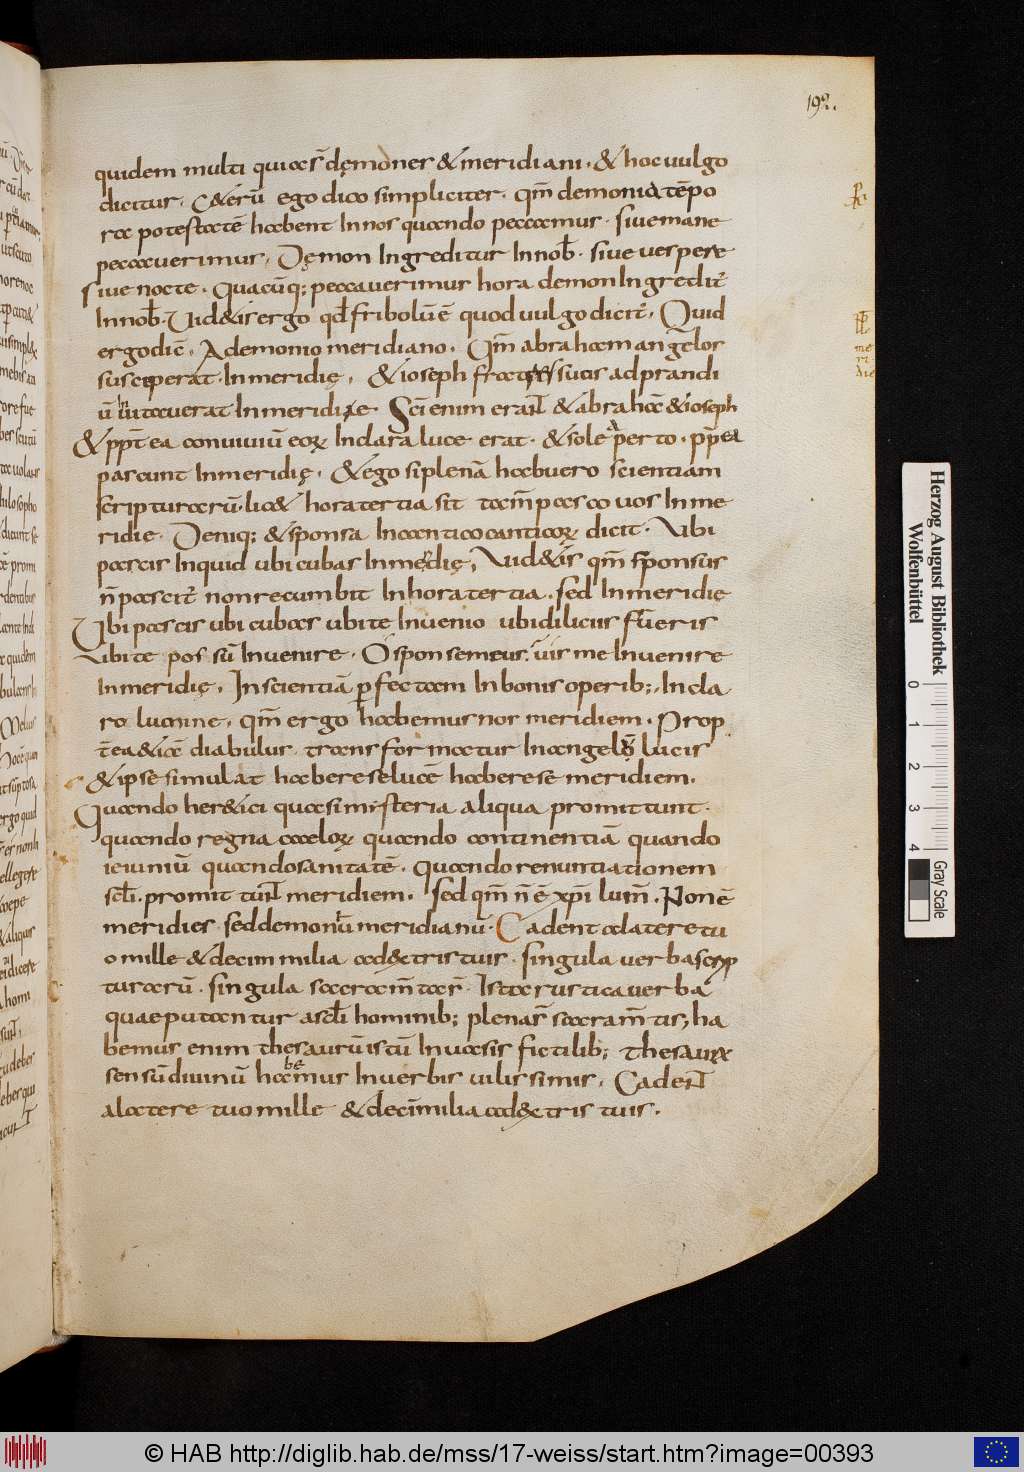 192.
quidem multi qui &meridiani · & hoc uulgo
dicitur · C&erū ego dico simpliciter · qm̄ demonia tēpo
rae potestatē habent In nos quando peccamus · siue mane
peccauerimus, Dęmon Ingreditur In nob̄ · siue uespere
siue nocte · Quacūq; peccauerimus hora demon Ingredit᷎
In nob̄ · Uid&is ergo qd̄ fribolū ē quod uulgo dicit᷎, Quid
ergo dic̄ · A demonio meridiano · Qm̄ abraham angelos
susceperat · In meridię, & ioseph suis ad prandi
ū Inuitauerat In meridie · Sci enim erant & abrahā & ioseph
& ppt̄ ea conuiuiū eoꝝ In clara luce erat · & sole perto · pp̄ ea
pascunt In meridię, & ego si plenā habuero scientiam
scripturarū · lic& hora tertia sit tam̄ pasco uos In me
ridie · Deniq; & sponsa In cantico canticoꝝ dicit · Ubi
pascis Inquid ubi cubas In meridię, Uid&is qm̄ sponsus
n̄ pascit᷎ non recumbit In hora tertia, sed In meridię
Ubi pascis ubi cubas ubi te Inuenio ubi dilicius fueris
Ubi te possū Inuenire · O sponse meus, uis me Inuenire
In meridię, In scientiā ꝑfectam In bonis operib;, In cla
ro lumine, qm̄ ergo habemus nos meridiem · Prop
t̄ ea &iā diabulus transformatur In angelū lucis
& ipse simulat habere se lucē habere se meridiem.
Quando her&ici quasi misteria aliqua promittunt ·
quando regna caeloꝝ quando continentiā quando
ieiuniū quando sanitatē · quando renuntiationem
scl̄i · promittunt meridiem, sed qm̄ n̄ ē xp̄i lum̄, Non ē
meridies sed demoniū meridianū · Cadent a latere tu
o mille & decim milia ad&xtris tuis · singula uerba scrip
turarū · singula sacram̄ta Ista rustica uerba
quae putantur ascl̄i hominib; plena s̄ sacram̄tis, ha
bemus enim thesaurū istū In uasis fictilib; Thesaurꝝ
sensū diuinū habemus In uerbis uilissimis, Cadent
a latere tuo mille & decim milia ad&xtris tuis.
me
ri
die
Herzog August Bibliothek
Wolfenbüttel
0 1 2 3 4
Gray Scale
© HAB http://diglib.hab.de/mss/17-weiss/start.htm?image=00393